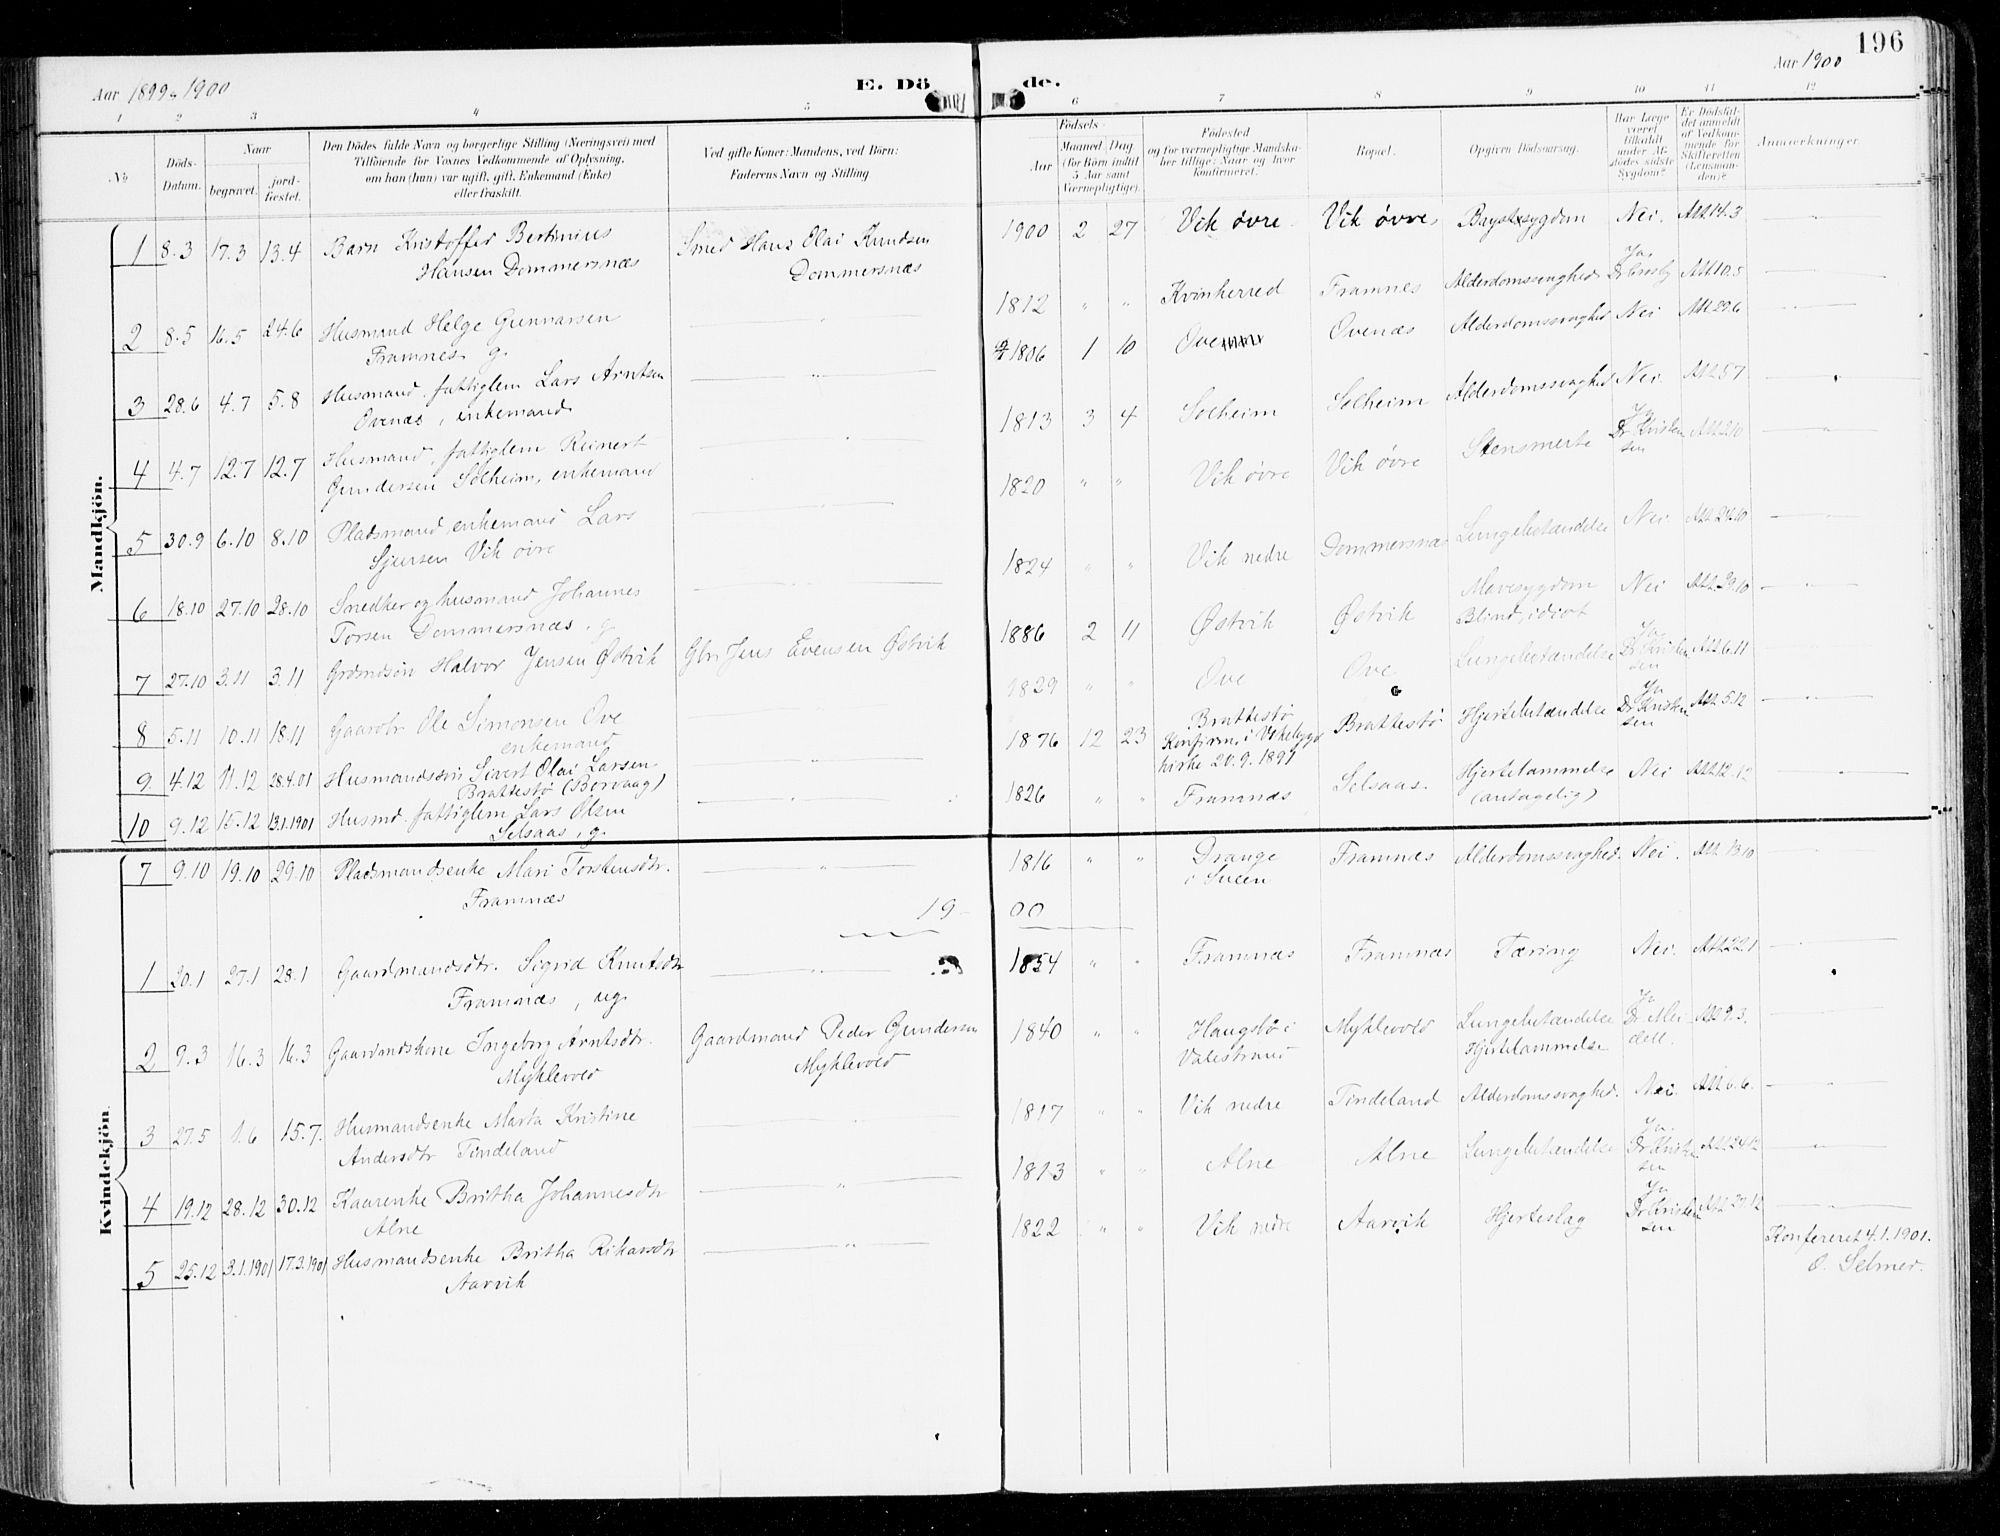 196
Aar 1899 & 1900
E. Döde.
Aar 1900
1 2 3 4 5 6 7 8 9 10 11 12
No
Döds-Datum.
Naar
begravet.
jordfæstet.
Den Dödes fulde Navn og borgerlige Stilling (Næringsvei) med
Tilföiende for Voxnes Vedkommende af Oplysning,
om han (hun) var ugift, gift, Enkemand (Enke)
eller fraskilt.
Ved gifte Koner: Mandens, ved Börn:
Faderens Navn og Stilling
Födsels-
Aar
Maaned Dag
(for Börn indtil
5 Aar samt
Værnepligtige).
Födested
og for værnepligtige Mandska-
ber tillige: Naar og hvor
konfirmeret.
Bopæl.
Opgiven Dödsaarsag.
Har Læge
været
tilkaldt
under Af-
dödes sidste
Sygdom?
Er Dödsfal-
det anmeldt
af Vedkom-
mende for
Skifteretten
(Lensman-
den)?
Anmærkninger.
Mandkjön.
1 8.3 17.3 13.4 Barn Kristoffer Bertinius
Hansen Dommersnæs
Smed Hans Olai Knudsen
Dommersnæs
1900 2 27 Vik øvre Vik øvre Brystsygdom Nei. Att. 14.3
2 8.5 16.5 24.6 Husmand Helge Gunnarsen
Framnes g.
1812 " " Kvinherred Framnes Alderdomssvaghed Ja Dr Grosby Att. 10.5
3 28.6 4.7 5.8 Husmand, fattiglem Lars Arntsen
Ovenæs, enkemand
1806 1 10 Ove Ovenæs Alderdomssvaghed Nei Att. 29.6
4 4.7 12.7 12.7 Husmand, fattiglem Reinert
Gundersen Solheim, enkemand
1813 3 4 Solheim Solheim Alderdomssvaghed Nei. Att. 5.7
5 30.9 6.10 8.10 Pladsmand, enkemand Lars
Sjursen Vik øvre
1820 " " Vik øvre Vik øvre Stensmerte Ja Dr Kristensen Att. 2.10
6 18.10 27.10 28.10 Snedker og husmand Johannes
Torsen Dommersnæs. g
1824 " " Vik nedre Dommersnæs Lungebetændelse Nei Att. 24.10
7 27.10 3.11 3.11 Grdmdsøn Halvor Jensen Østvik
Gbr Jens Evensen Østvik
1886 2 11 Østvik Østvik Mavesygdom
Blind, idiot Nei Att. 29.10
8 5.11 10.11 18.11 Gaardbr. Ole Simonsen Ove
enkemand
1829 " " Ove Ove Lungebetændelse Ja Dr Kristensen Att. 6.11
9 4.12 11.12 28.4.01 Husmandssøn Sivert Olai Larsen
Brattestø (Borvaag)
1876 12 23 Brattestø
Konfirm. i Vikebygd
kirke 20.9.1891 Brattestø Hjertebetændelse Ja Dr Kristensen Att. 5.12
10 9.12 15.12 13.1.1901 Husmd. fattiglem Lars Olsen
Selsaas, g.
1826 " " Framnæs Selsaas. Hjertelammelse
(antagelig) Nei Att. 12.12
Kvindekjön.
7 9.10 19.10 29.10 Pladsmandsenke Mari Torstensdtr.
Framnæs
1816 " " Drange
i Sveen Framnæs Alderdomssvaghed. Nei. Att. 13.10
1900
1 20.1 27.1 28.1 Gaardmandsdtr. Sigrid Knutsdtr
Framnæs, ug.
1854 " " Framnæs Framnæs Tæring Nei. Att. 22.1
2 9.3 16.3 16.3 Gaardmdskone Ingeborg Arntsdtr.
Myklevold
Gaardmand Peder Gundersen
Myklevold
1840 " " Haugstø i
Valestrand Myklevold Lungebetændelse
Hjertelammelse Ja Dr Meidell. Att. 9.3.
3 27.5 1.6 15.7. Husmandsenke Marta Kristine
Andersdtr Tindeland
1817 " " Vik nedre Tindeland Alderdomssvaghed. Nei. Att. 6.6.
4 19.12 28.12 30.12 Kaarenke Britha Johannesdtr
Alne
1813 " " Alne Alne Lungebetændelse Ja. Dr Kristensen Att. 24.12
5 25.12 3.1.1901 17.3.1901 Husmandsenke Britha Rikarsdtr
Aarvik
1822 " " Vik nedre Aarvik Hjerteslag Ja Dr Kristensen Att. 27.12
Konfereret 4.1.1901.
O. Selmer.